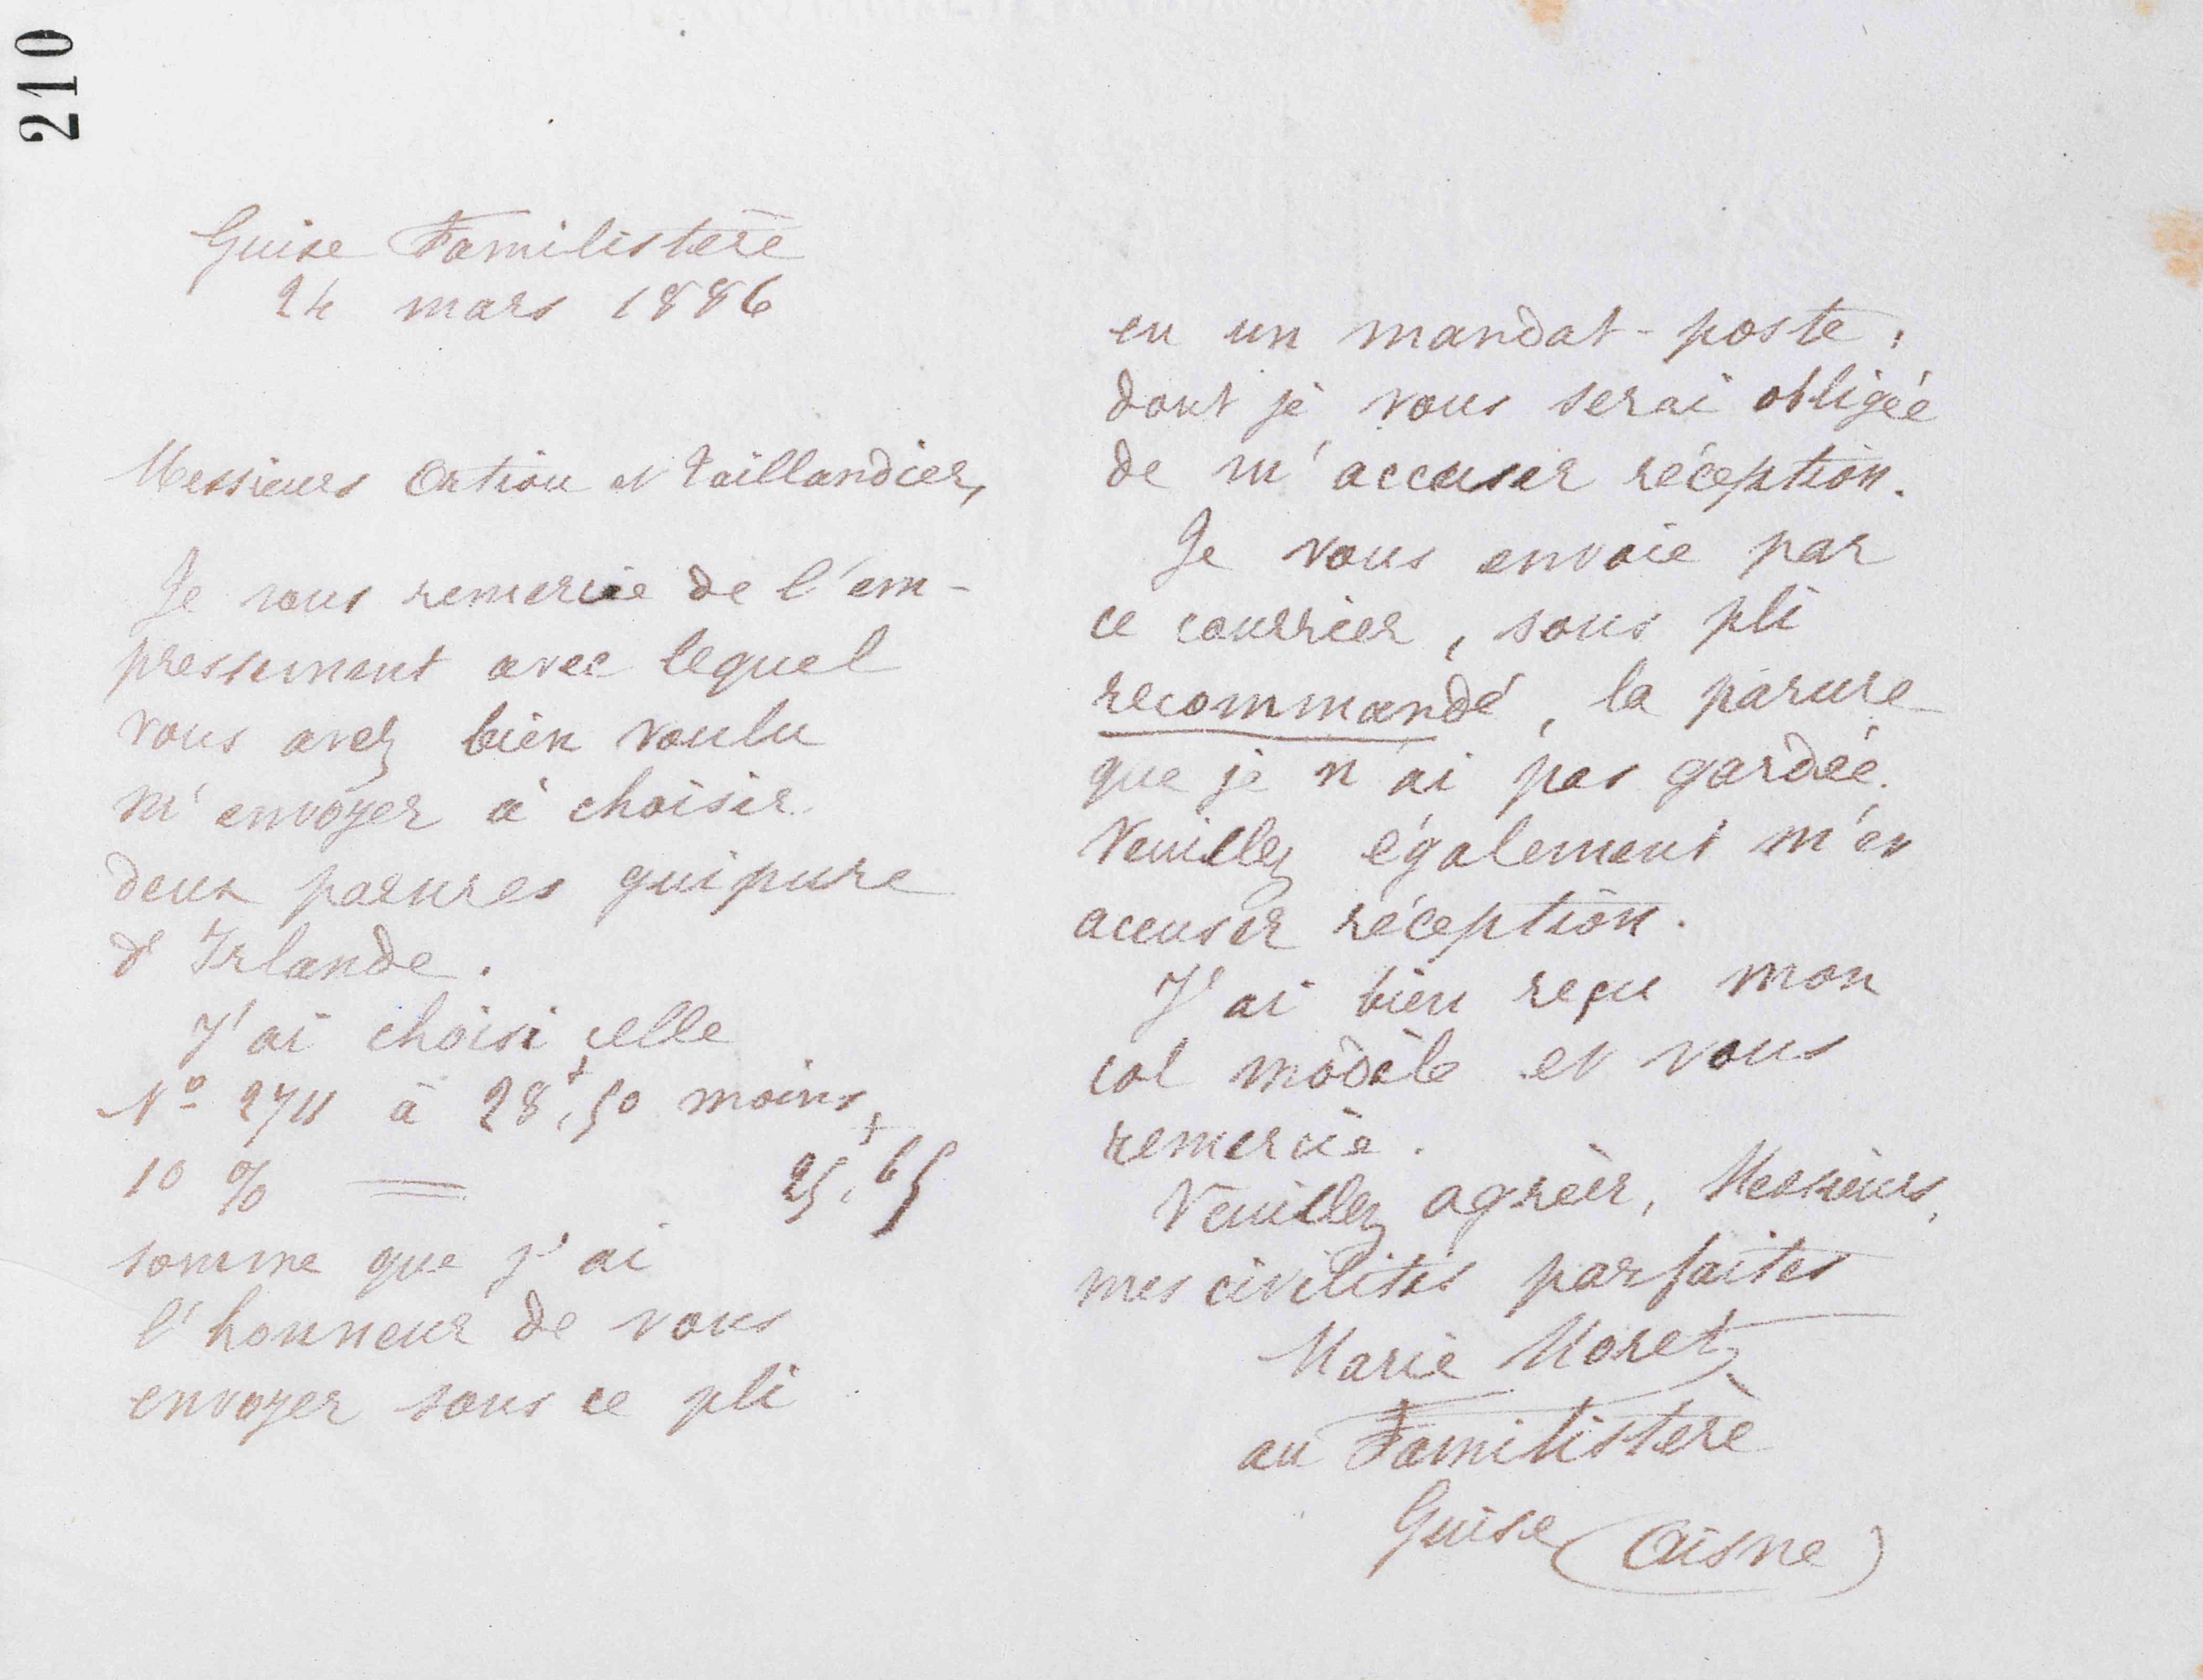 210
Guise Familistère
24 mars 1886
Messieurs Artiou et Taillandier,
Je vous remercie de l'em-
pressement avec lequel
vous avez bien voulu
m'envoyer à choisir
deux parures guipure
d'Irlande.
J'ai choisi celle
No 2711 à 28f,50 moins
10 % = 25f,65
somme que j'ai
l'honneur de vous
envoyer sous ce pli
en un mandat-poste,
dont je vous serai obligée
de m'accuser réception.
Je vous envoie par
ce courrier, sous pli
recommandé, la parure
que je n'ai pas gardée.
Veuillez également m'en
accuser réception.
J'ai bien reçu mon
col modèle et vous
remercie.
Veuillez agréer, Messieurs,
mes civilités parfaites
Marie Moret
au Familistère
Guise (Aisne)